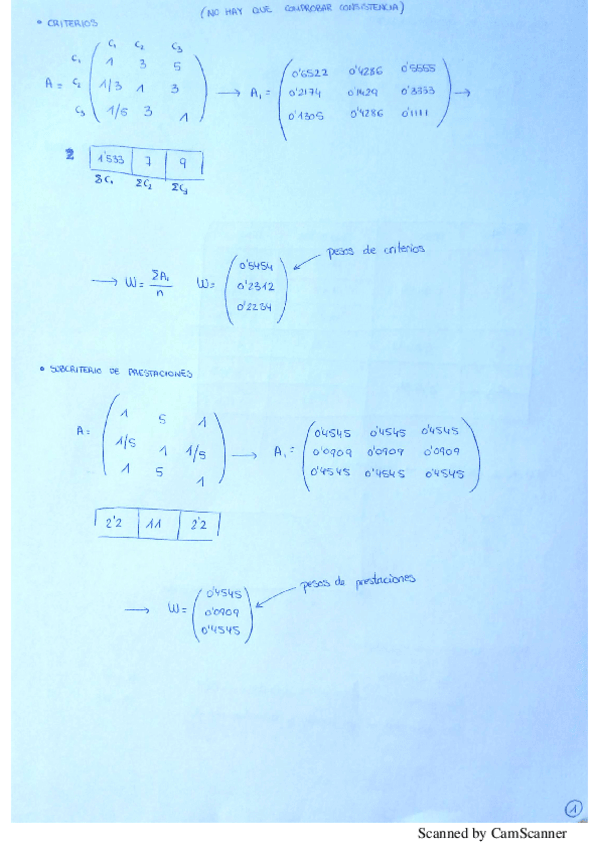 (NO HAY QUE COMPROBAR CONSISTENCIA)
• CRITERIOS
C₁ C₂ C₃
C₁ 1 3 5
A = C₂ 1/3 1 3
C₃ 1/5 3 1
→ A₁ =
0'6522 0'4286 0'5555
0'2174 0'1429 0'3333
0'1305 0'4286 0'1111
→
Σ 1'533 7 9
ΣC₁ ΣC₂ ΣC₃
→ W = ΣA₁/n W =
0'5454
0'2312
0'2234
pesos de criterios
• SUBCRITERIO DE PRESTACIONES
A =
1 5 1
1/5 1 1/5
1 5 1
→ A₁ =
0'4545 0'4545 0'4545
0'0909 0'0909 0'0909
0'4545 0'4545 0'4545
2'2 11 2'2
→ W =
0'4545
0'0909
0'4545
pesos de prestaciones
1
Scanned by CamScanner